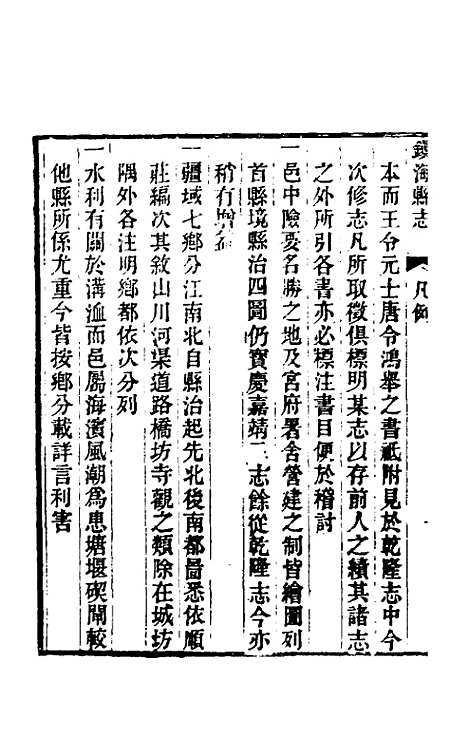 鎮海縣志　凡例
本而王令元士唐令鴻舉之書祗附見於乾隆志中今
次修志凡所取徵俱標明某志以存前人之績其諸志
之外所引各書亦必標注書目便於稽討
一邑中險要名勝之地及宮府署舍營建之制皆繪圖列
首縣境縣治四圖仍寶慶嘉靖二志餘從乾隆志今亦
稍有增
一疆域七鄉分江南北自縣治起先北後南都啚悉依順
莊編次其敘山川河渠道路橋坊寺觀之類除在城坊
隅外各注明鄉都依次分列
一水利有關於溝洫而邑屬海濱風潮爲患塘堰碶閘較
他縣所係尤重今皆按鄉分載詳言利害